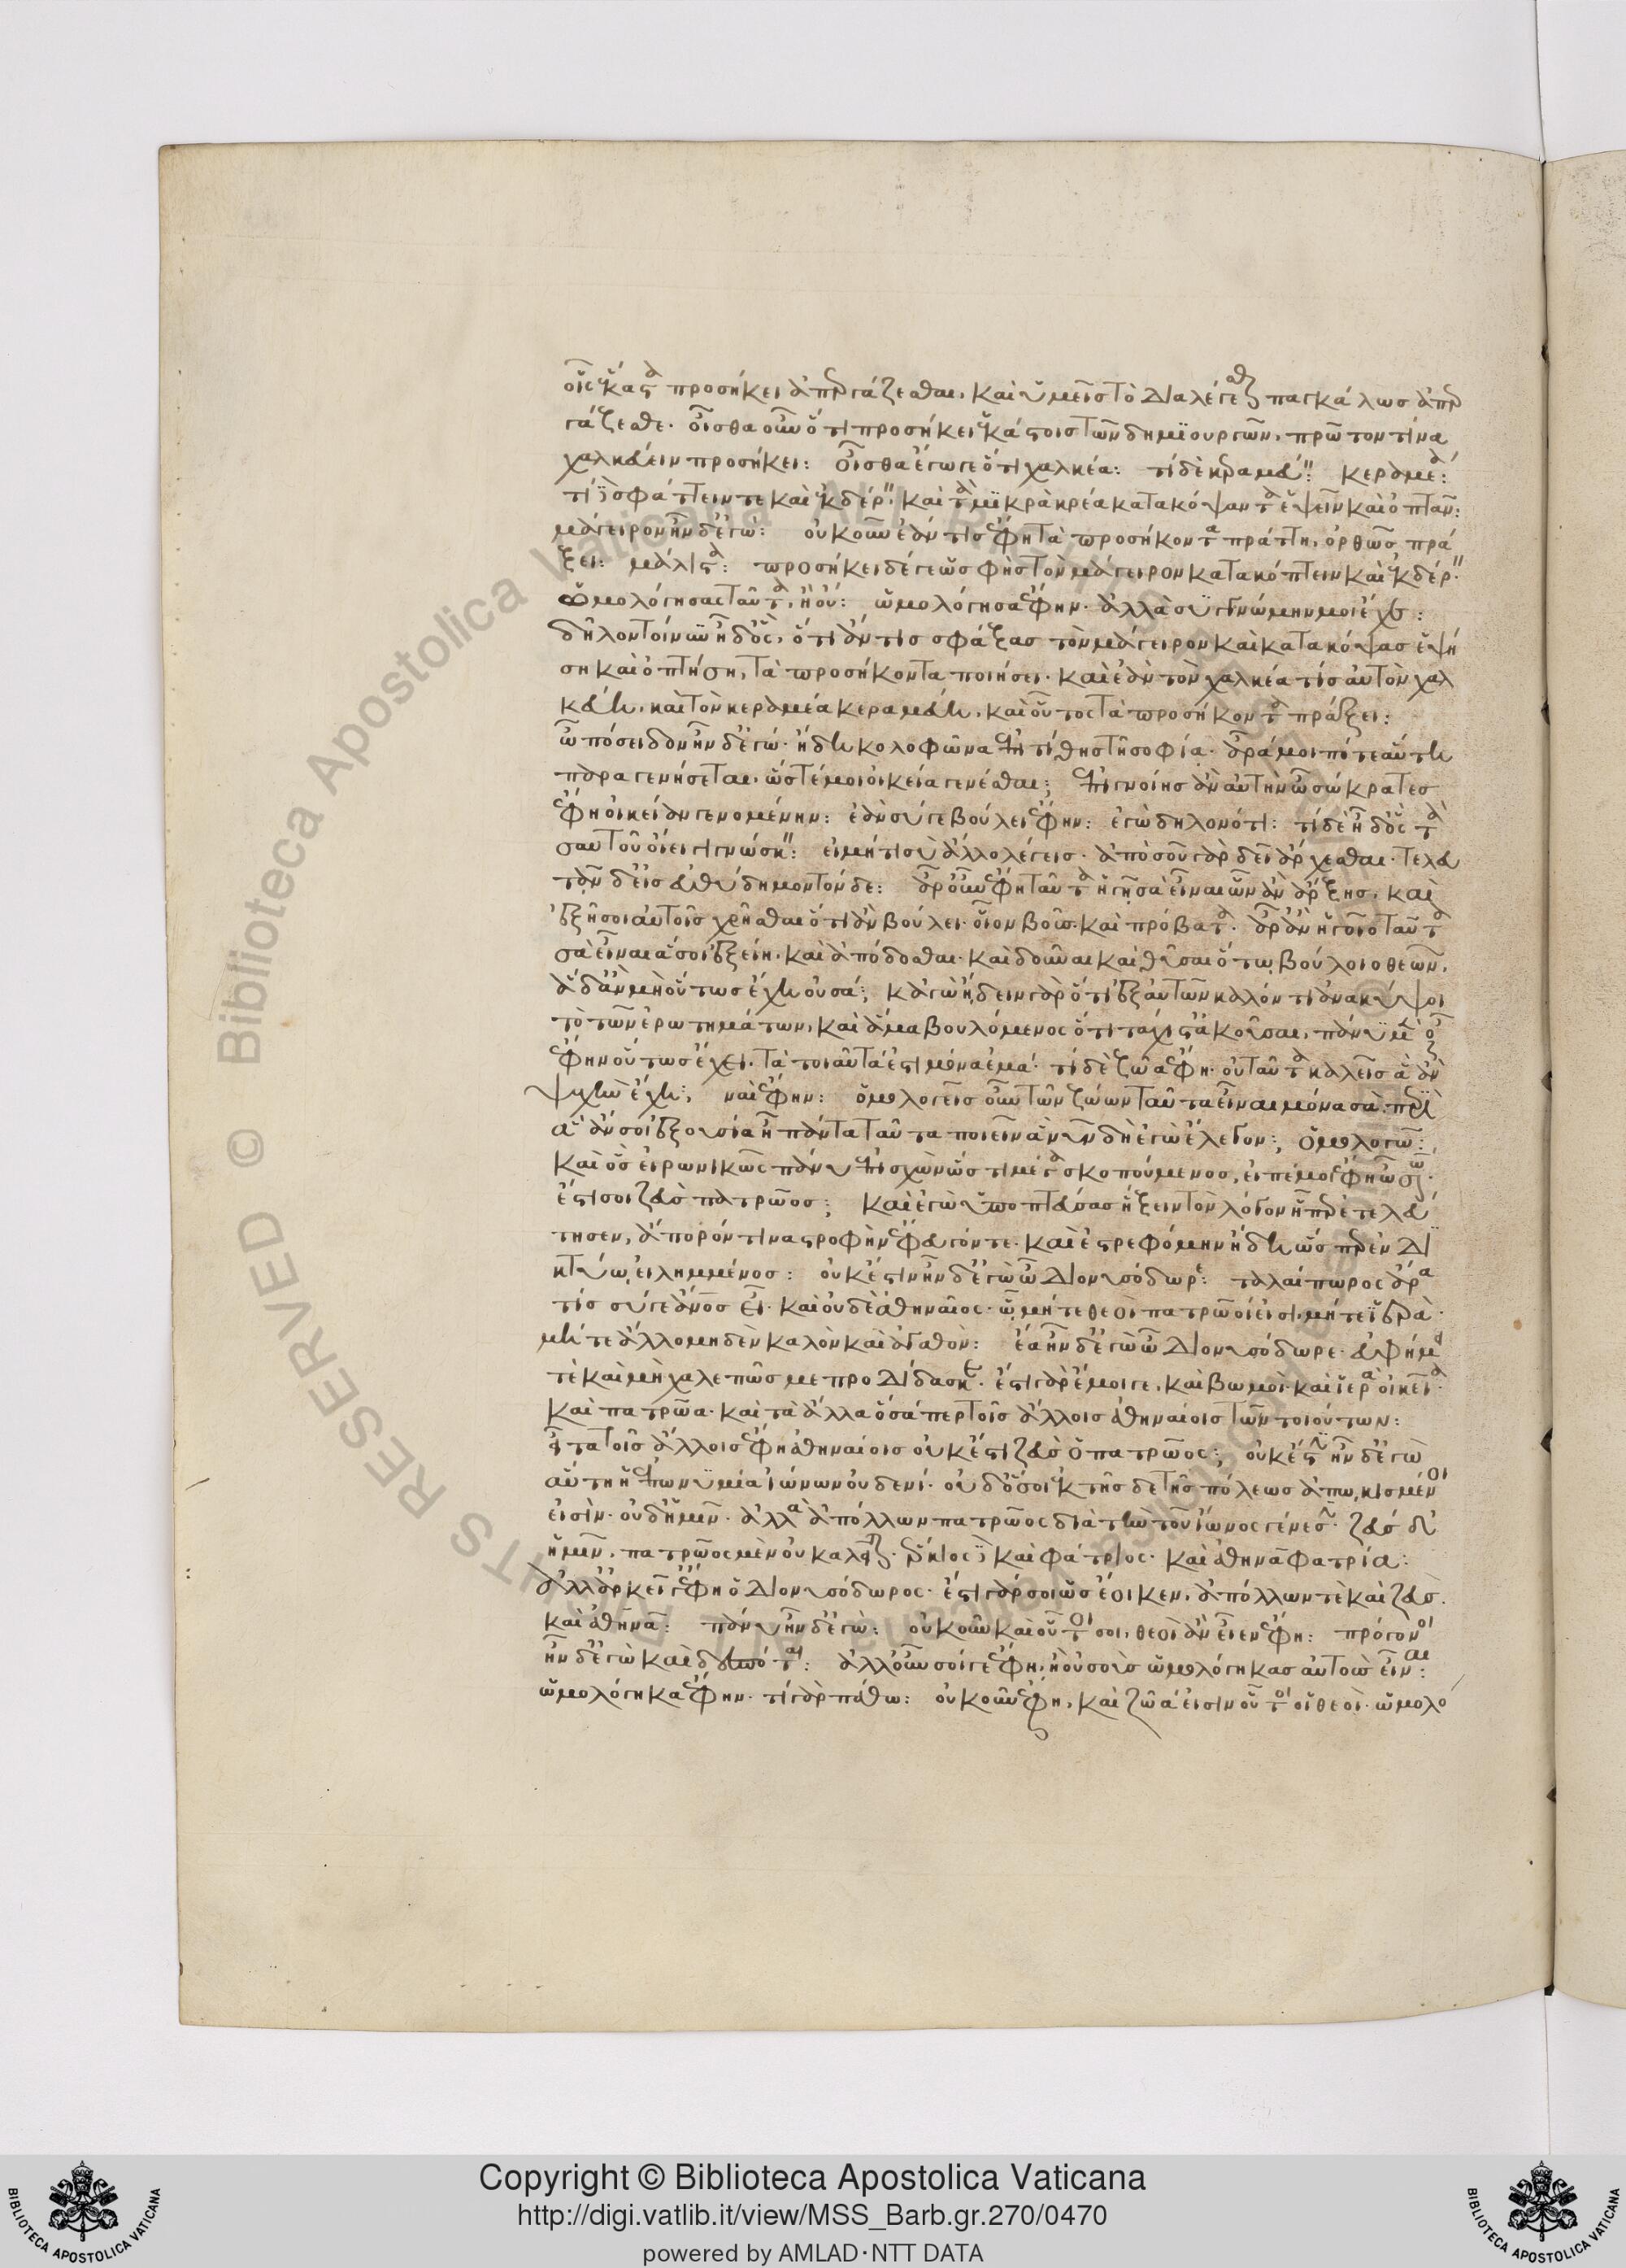 οἷς ἕκαστα προσήκει ἀπεργάζεσθαι, καὶ ὑμεῖς τὸ διαλέγεσθαι παγκάλως ἀπερ
γάζεσθε. οἶσθα οὖν ὅτι προσήκει ἑκάστοις τῶν δημϊουργῶν, πρῶτον τίνα
χαλκεύειν προσήκει: οἶσθα ἔγωγε ὅτι χαλκέα: τί δὲ κεραμεύειν: κεραμέα:
τί δὲ σφάττειν τε καὶ ἐκδέρειν, καὶ τὰ μϊκρὰ κρέα κατακόψαντα ἕψειν καὶ ὀπτᾶν:
μάγειρον ἦν δ' ἐγώ: οὐκοῦν ἐάν τις ἔφη τὰ προσήκοντα πράττη, ὀρθῶς πρά
ξει: μάλιστα: προσήκει δέ γε ὡς φῂς τὸν μάγειρον κατακόπτειν καὶ ἐκδέρειν.
ὡμολόγησας ταῦτα, ἢ οὔ: ὡμολόγησα ἔφην. ἀλλὰ συγγνώμην μοι ἔχε:
δῆλον τοίνυν ἦ δ' ὅς, ὅτι ἄν τις σφάξας τὸν μάγειρον καὶ κατακόψας ἑψή
ση καὶ ὀπτήση, τὰ προσήκοντα ποιήσει. καὶ ἐὰν τὸν χαλκέα τίς αὐτὸν χαλ
κεύη, καὶ τὸν κεραμέα κεραμεύη, καὶ οὗτος τὰ προσήκοντα πράξει:
ὦ πόσειδον ἦν δ' ἐγώ. ἤδη κολοφῶνα ἐπιτίθης τῆ σοφία. ἆρά μοι πότε αὕτη
παραγενήσεται, ὥστέ μοι οἰκεία γενέσθαι; ἐπιγνοίης ἂν αὐτὴν ὦ σώκρατες
ἔφη οἰκείαν γενομένην: ἐὰν σύ γε βούλει ἔφην: ἐγὼ δηλονότι: τί δὲ ἦ δ' ὃς τὰ
σαυτοῦ οἴει γιγνώσκειν: εἰ μή τι σὺ ἄλλο λέγεις. ἀπὸ σοῦ γὰρ δεῖ ἄρχεσθαι. τελευ
τᾶν δ' εἰς εὐθύδημον τόνδε: ἆρ' οὖν ἔφη ταῦτα ἡγῆ σὰ εἶναι ὧν ἂν ἄρξης, καὶ
ἐξῆ σοι αὐτοῖς χρῆσθαι ὅτι ἂν βούλει. οἷον βοῦς καὶ πρόβατα. ἆρ' ἂν ἡγοῖο ταῦτα
σὰ εἶναι ἅ σοι ἐξείη. καὶ ἀπόδοσθαι. καὶ δοῦναι καὶ θῦσαι ὅτω βούλοιο θεῶν,
ἃ δ' ἂν μὴ οὕτως ἔχη οὐ σά; κἀγὼ ἤδειν γὰρ ὅτι ἐξ αὐτῶν καλόν τι ἀνακύψοι
τὸ τῶν ἐρωτημάτων, καὶ ἅμα βουλόμενος ὅτι τάχιστα ἀκοῦσαι, πάνυ μὲν οὖν
ἔφην οὕτως ἔχει. τὰ τοιαῦτά ἐστι μόνα ἐμά. τί δὲ ζῶα ἔφη. οὐ ταῦτα καλεῖς ἃ ἂν
ψυχὴν ἔχη; ναὶ ἔφην: ὁμολογεῖς οὖν τῶν ζώων ταῦτα εἶναι μόνα σὰ, περὶ
ἃ ἄν σοι ἐξουσία ἦ πάντα ταῦτα ποιεῖν ἃ νῦν δὴ ἐγὼ ἔλεγον; ὁμολογῶ:
καὶ ὃς εἰρωνικῶς πάνυ ἐπισχὼν ὥς τι μέγα σκοπούμενος, εἰπέ μοι ἔφη ὦ σώκρατες.
ἔστι σοι ζεὺς πατρῶος; καὶ ἐγὼ ὑποπτεύσας ἥξειν τὸν λόγον ἧπερ ἐτελεύ
τησεν, ἄπορόν τινα στροφὴν ἔφευγόν τε. καὶ ἐστρεφόμην ἤδη ὥσπερ ἐν δι
κτύω εἰλημμένος: οὐκ ἔστιν ἦν δ' ἐγὼ ὦ διονυσόδωρε: ταλαίπωρος ἄρα
τίς σύ γε ἄνθρωπος εἶ. καὶ οὐδὲ ἀθηναῖος. ὧ μήτε θεοὶ πατρῶοί εἰσι, μήτε ἱερὰ.
μήτε ἄλλο μηδὲν καλὸν καὶ ἀγαθὸν: ἔα ἦν δ' ἐγὼ ὦ διονυσόδωρε. εὐφήμει
τὲ καὶ μὴ χαλεπῶς με προδίδασκε. ἔστι γὰρ ἔμοιγε, καὶ βωμοὶ καὶ ἱερὰ οἰκεῖα.
καὶ πατρῶα. καὶ τὰ ἄλλα ὅσά περ τοῖς ἄλλοις ἀθηναίοις τῶν τοιούτων:
εἶτα τοῖς ἄλλοις ἔφη ἀθηναίοις οὐκ ἔστι ζεὺς ὁ πατρῶος; οὐκ ἔστιν ἦν δ' ἐγὼ
αὕτη ἡ ἐπωνυμία ἰώνων οὐδενί. οὐδ' ὅσοι ἐκ τῆσδε τῆς πόλεως ἀπωκισμένοι
εἰσὶν. οὐδ' ἡμῖν. ἀλλὰ ἀπόλλων πατρῶος διὰ τὴν τοῦ ἴωνος γένεσιν. ζεὺς δ'
ἡμῖν, πατρῶος μὲν οὐ καλεῖται. ἕρκιος δὲ καὶ φάτριος. καὶ ἀθηνᾶ φατρία:
ἀλλ' ἀρκεῖ γ' ἔφη ὁ διονυσόδωρος. ἔστι γάρ σοι ὡς ἔοικεν, ἀπόλλων τὲ καὶ ζεὺς.
καὶ ἀθηνᾶ: πάνυ ἦν δ' ἐγὼ: οὐκοῦν καὶ οὗτοί σοι, θεοὶ ἂν εἶεν ἔφη: πρόγονοι
ἦν δ' ἐγὼ καὶ δεσπόται: ἀλλ' οὖν σοί γε ἔφη, ἢ οὐ σοὺς ὡμολόγηκας αὐτοὺς εἶναι:
ὡμολόγηκα ἔφην. τί γὰρ πάθω: οὐκοῦν ἔφη, καὶ ζῶά εἰσιν οὗτοι οἱ θεοὶ. ὡμολό
Copyright © Biblioteca Apostolica Vaticana
http://digi.vatlib.it/view/MSS_Barb.gr.270/0470
powered by AMLAD·NTT DATA